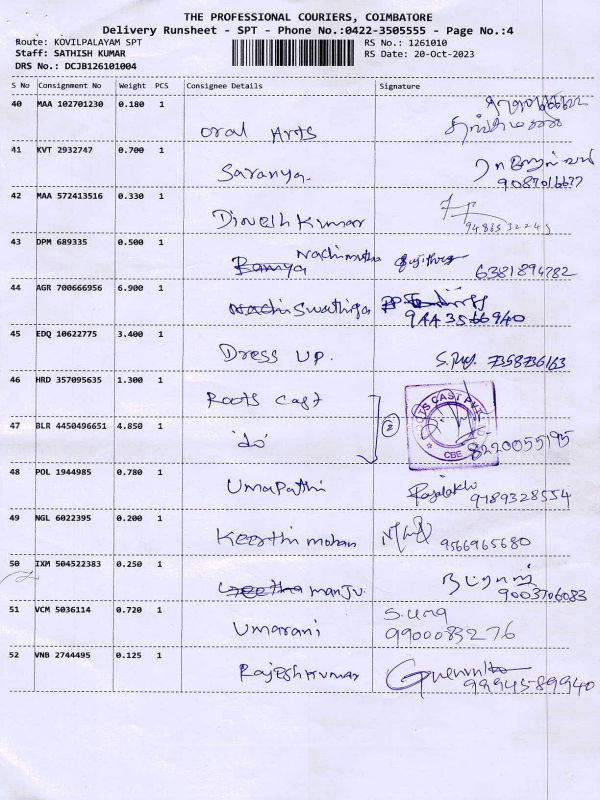 THE PROFESSIONAL COURIERS, COIMBATORE
Delivery Runsheet - SPT - Phone No.:0422-3505555 - Page No.:4
Route: KOVILPALAYAM SPT RS No.: 1261010
Staff: SATHISH KUMAR RS Date: 20-Oct-2023
DRS No.: DCJB126101004
S No Consignment No Weight PCS Consignee Details Signature
40 MAA 102701230 0.180 1
Oral Arts
41 KVT 2932747 0.700 1
Saranya.
9087016677
42 MAA 572413516 0.330 1
Dinesh Kumar
9486532245
43 DPM 689335 0.500 1
Ramya Nachimuthu
6381894782
44 AGR 700666956 6.900 1
Nachi Swathiga
9443566940
45 EDQ 10622775 3.400 1
Dress UP. 7358736163
46 HRD 357095635 1.300 1
Roots Cast
47 BLR 4450496651 4.850 1
"do" 2 CBE 8220055195
48 POL 1944985 0.780 1
Umapathi Rajalakshmi 9789328554
49 NGL 6022395 0.200 1
Keerthi mohan 9566965680
50 IXM 504522383 0.250 1
Geetha manju 9003706083
51 VCM 5036114 0.720 1
Umarani S. uma
9900083276
52 VNB 2744495 0.125 1
Rajesh Kumar
9994589940